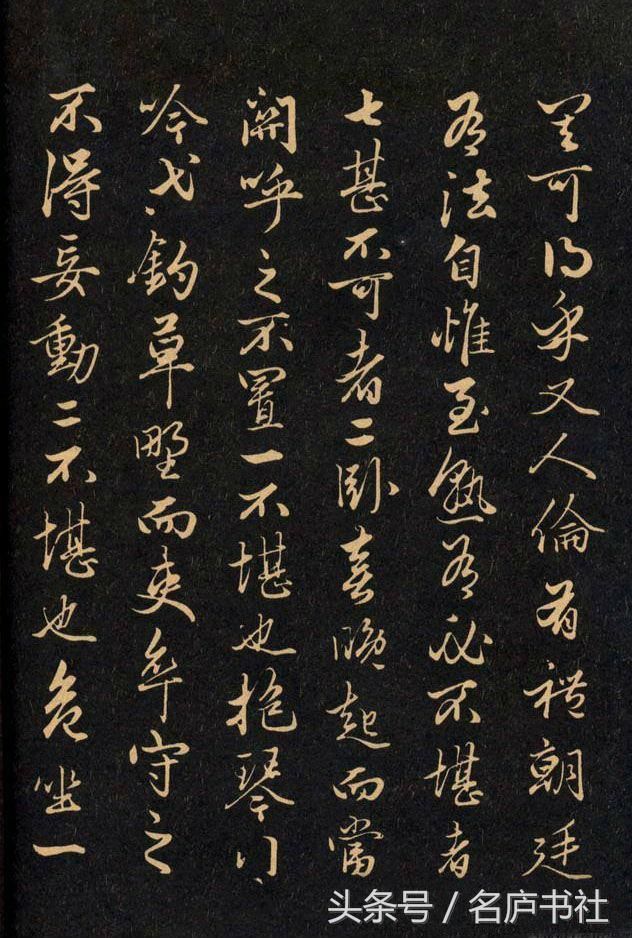 其可得乎又人倫有礼朝廷
有法自惟至熟有必不堪者
七甚不可者二卧喜晚起而當
關呼之不置一不堪也抱琴行
吟弋釣草野而吏卒守之
不得妄動二不堪也危坐一
头条号 / 名庐书社